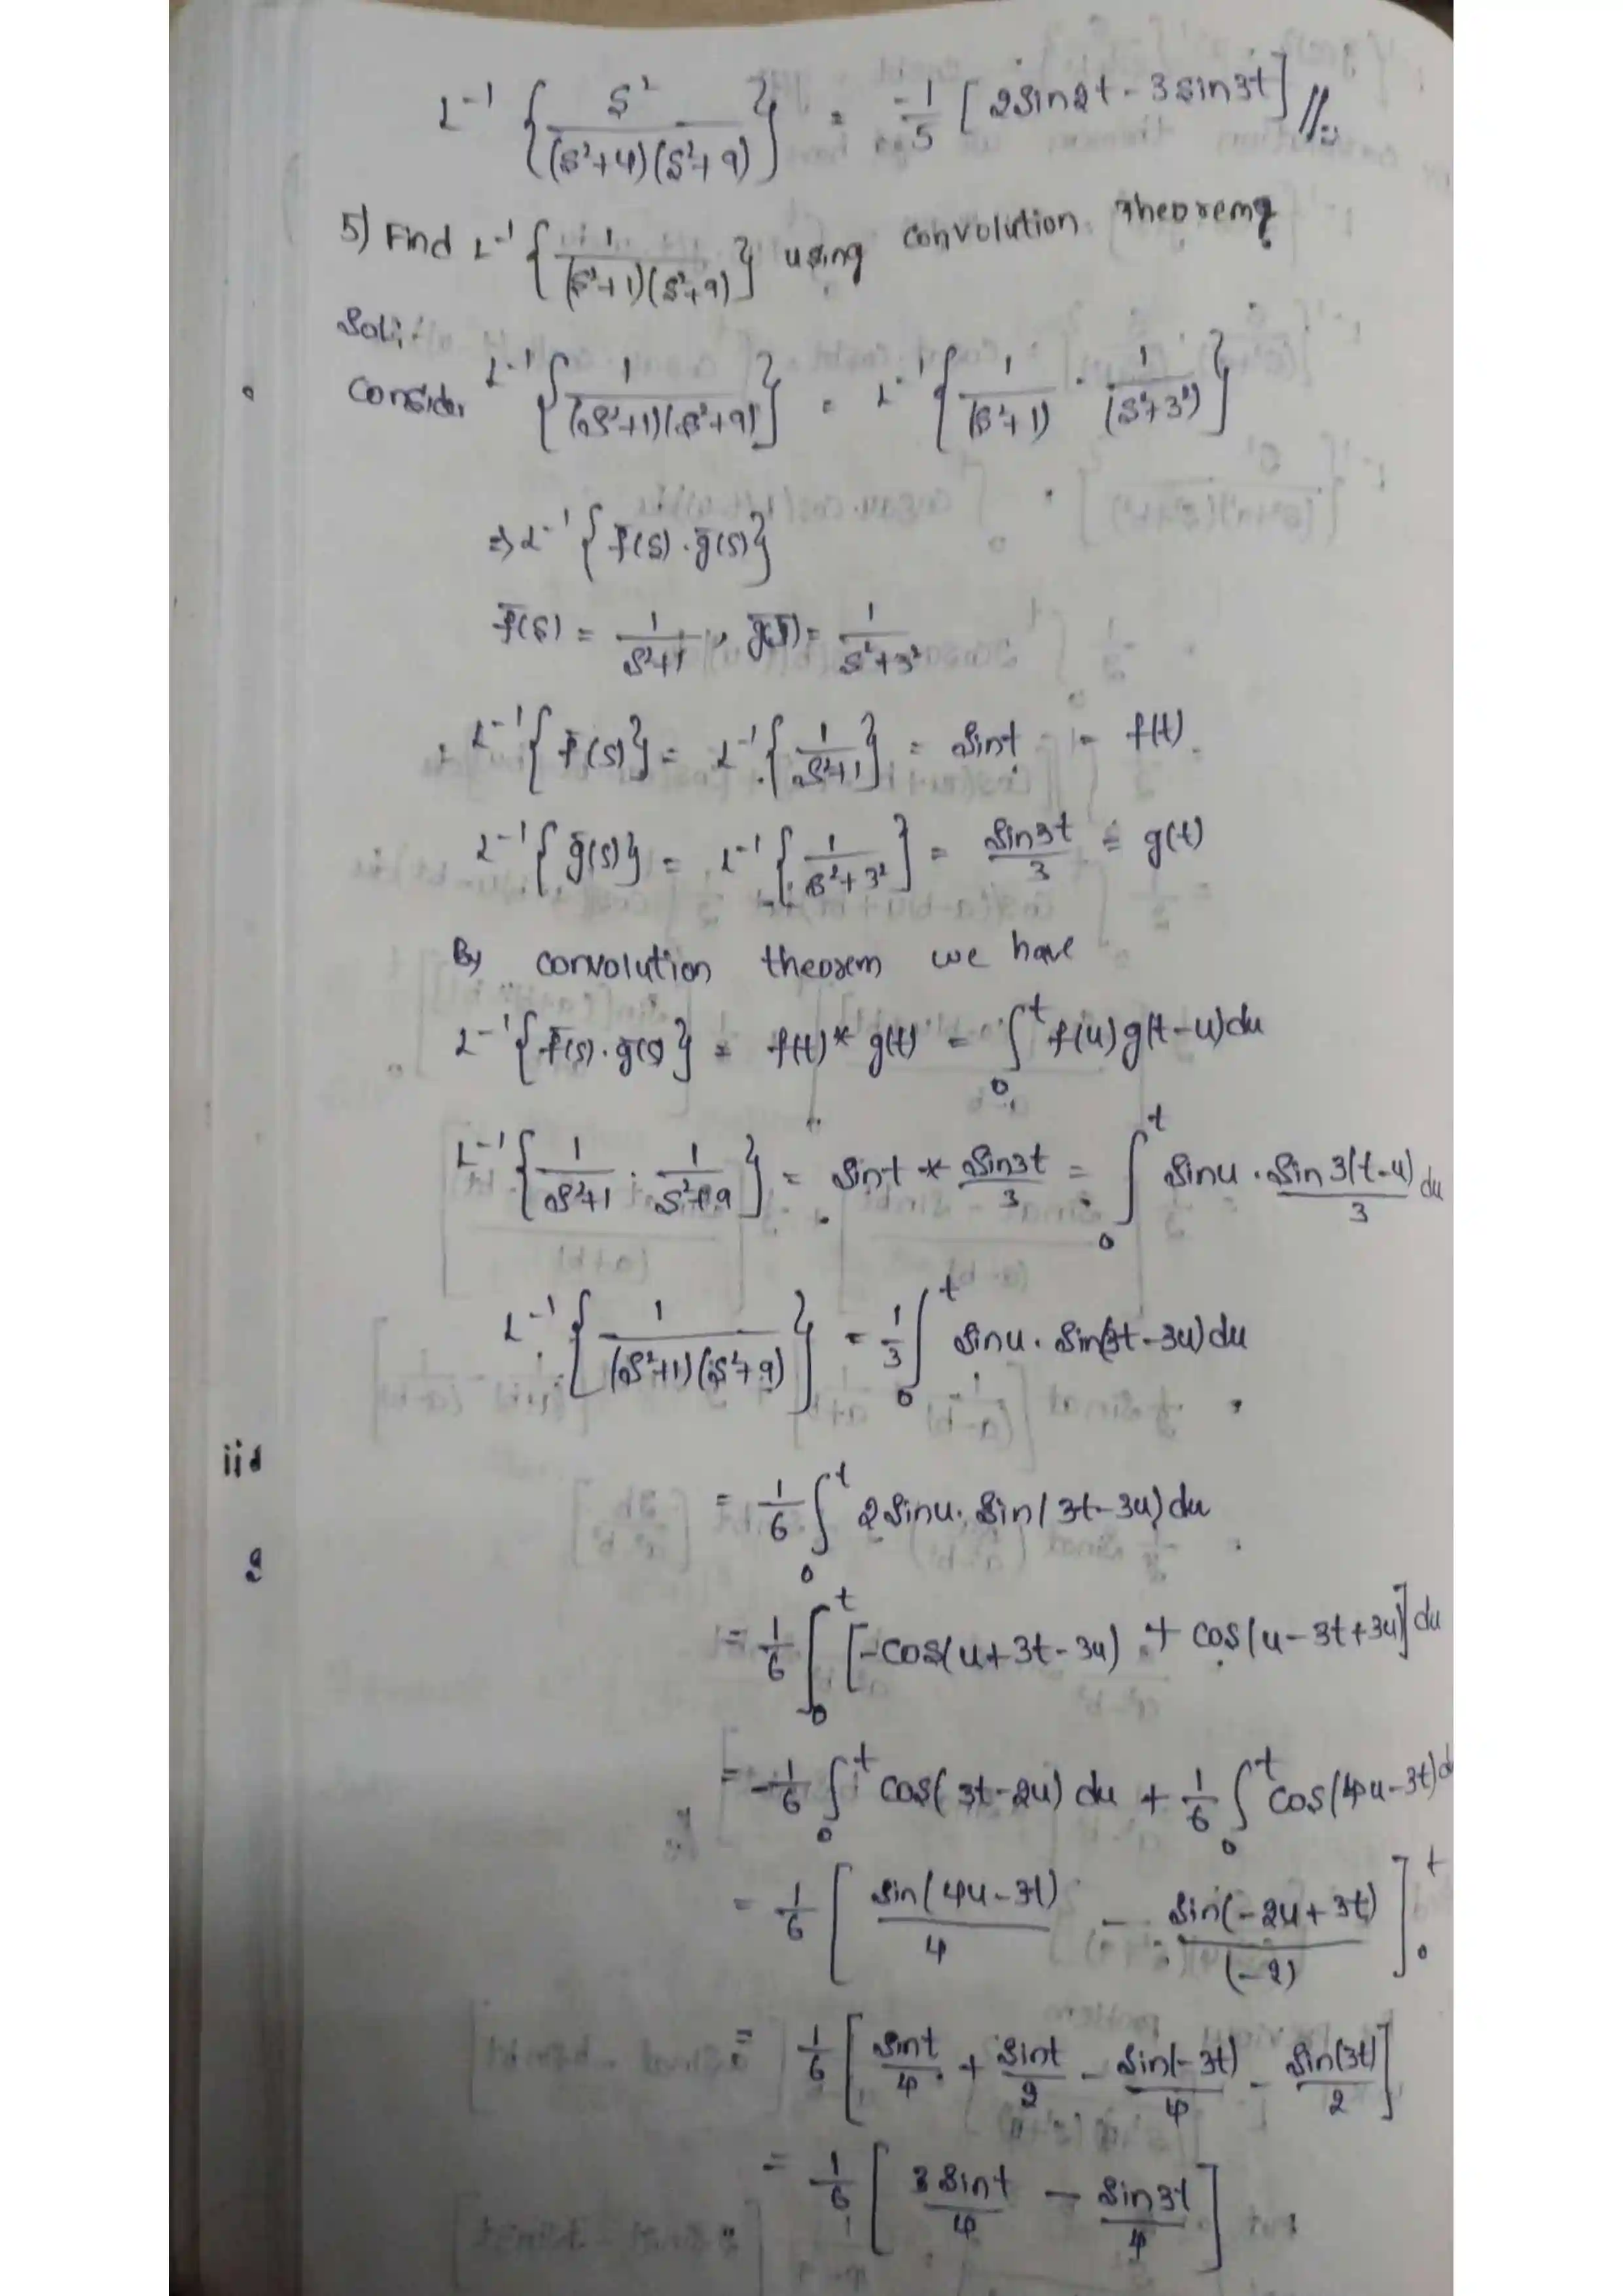 L⁻¹ { s² / (s²+4)(s²+9) } = -1/5 [2sin2t - 3sin3t] //=
5) Find L⁻¹ { 1 / (s²+1)(s²+9) } using convolution theorem?
Sol:-
Consider L⁻¹ { 1 / (s²+1)(s²+9) } = L⁻¹ { 1/(s²+1) · 1/(s²+3²) }
⇒ L⁻¹ { f̄(s) · ḡ(s) }
f̄(s) = 1/s²+1 , ḡ(s) = 1/s²+3²
L⁻¹ { f̄(s) } = L⁻¹ { 1/s²+1 } = sint = f(t)
L⁻¹ { ḡ(s) } = L⁻¹ { 1/s²+3² } = sin3t/3 = g(t)
By convolution theorem we have
L⁻¹ { f̄(s) · ḡ(s) } = f(t) * g(t) = ∫₀ᵗ f(u) g(t-u) du
L⁻¹ { 1/s²+1 · 1/s²+9 } = sint * sin3t/3 = ∫₀ᵗ sinu · sin3(t-u)/3 du
L⁻¹ { 1 / (s²+1)(s²+9) } = 1/3 ∫₀ᵗ sinu · sin(3t-3u) du
iid
= 1/6 ∫₀ᵗ 2sinu · sin(3t-3u) du
= 1/6 ∫₀ᵗ [-cos(u+3t-3u) + cos(u-3t+3u)] du
= -1/6 ∫₀ᵗ cos(3t-2u) du + 1/6 ∫₀ᵗ cos(4u-3t) d
= 1/6 [ sin(4u-3t)/4 - sin(-2u+3t)/(-2) ]₀ᵗ
= 1/6 [ sint/4 + sint/2 - sin(-3t)/4 - sin(3t)/2 ]
= 1/6 [ 3sint/4 - sin3t/4 ]